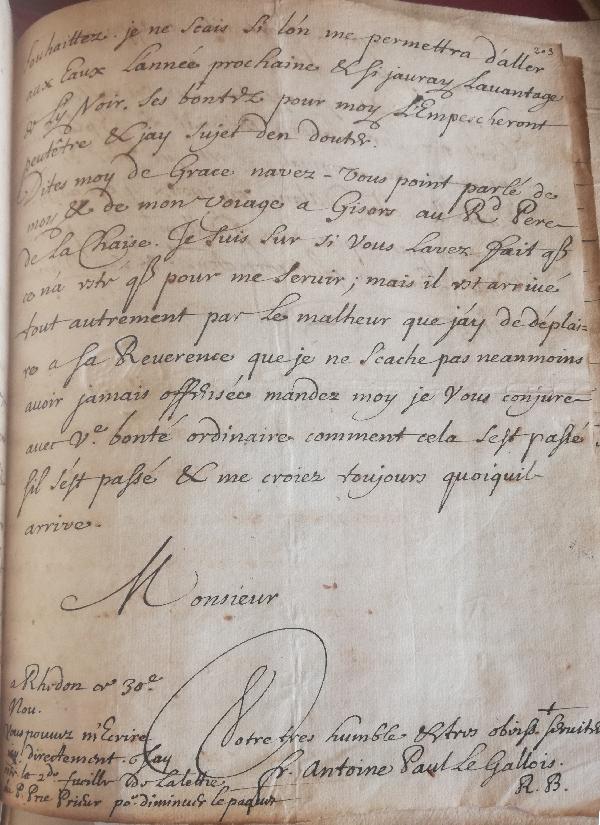 203
souhaittez. je ne scais si lón me permettra dáller
aux Eaux Lánnée prochaine & si jauray Lavantage
de Ly Noir. Ses bontéz pour moy LÉmpescheront
peutétre & jáy sujet dén doutér.
Dites moy de Grace navez-vous point parlé de
moy & de mon voiage a Gisors au Rd Pere
de La Chaise. Je suis sur si vous Lavez fait
co ná esté pour me servir; mais il est arrivé
tout autrement par Le malheur que jáy de déplai=
re a Sa Reverence que je ne scache pas neanmoins
avoir jamais offensée mandez moy je vous conjure
avec Ve. bonté ordinaire comment cela sést passé
sil sést passé & me croiez toujours quoiquil
arrive.
Monsieur
a Rhedon ce 30e.
Nou.
Vous pouvez m'Ecrire
directement. ostay
la 2de fueille de La lettre
P. Pne Prieur por. diminuer le paquet
Votre tres humble & tres obeiss. + Servite
fr. Antoine Paul Le Gallois.
R. B.